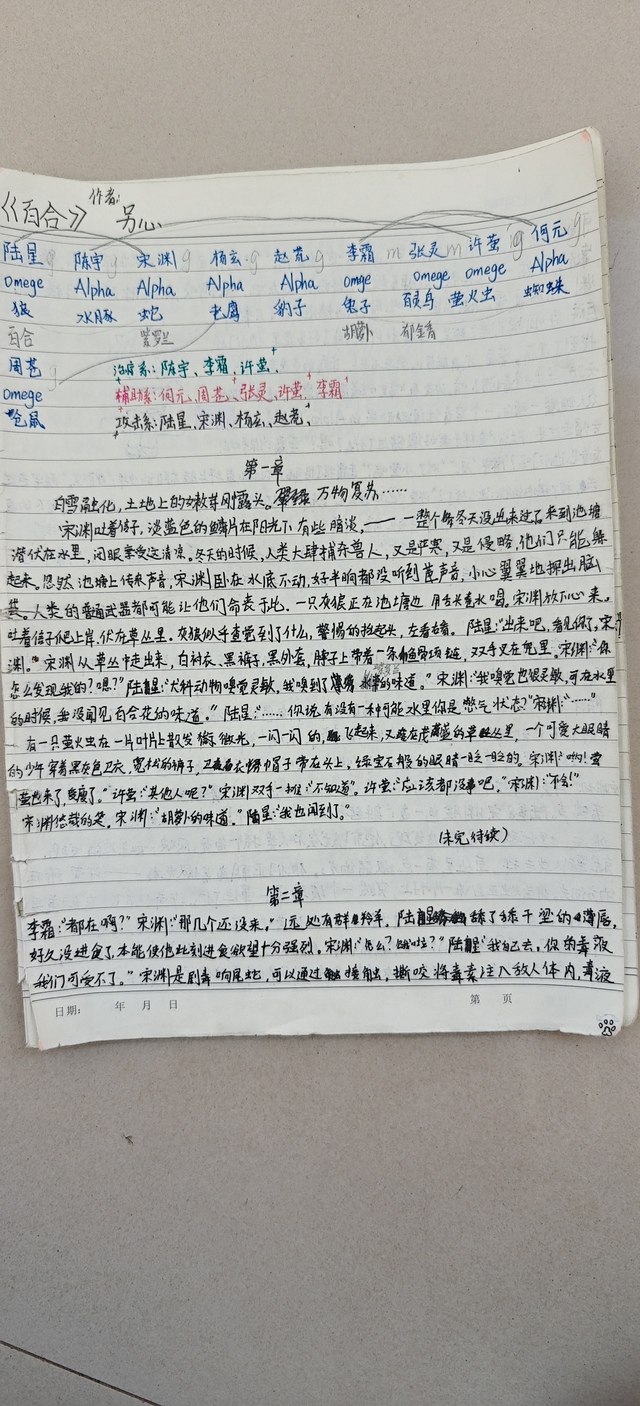 《百合》 作者：另心
陆星g 陈宇g 宋渊g 杨玄g 赵荒g 李霜m 张灵m 许萤g 何元g
Omege Alpha Alpha Alpha Alpha omge Omege omege Alpha
狼 水豚 蛇 老鹰 豹子 兔子 百灵鸟 萤火虫 蜘蛛
百合 紫罗兰 胡萝卜 郁金香
周苍 治疗系：陈宇、李霜、许萤、
Omege 辅助系：何元、周苍、张灵、许萤、李霜
鼯鼠 攻击系：陆星，宋渊，杨玄，赵荒，
第一章
白雪融化，土地上的嫩芽刚露头。 万物复苏……
宋渊吐着信子，淡蓝色的鳞片在阳光下有些暗淡，—— 一整个冬天没出来过了来到池塘
潜伏在水里，闭眼享受这清凉。冬天的时候，人类大肆捕杀兽人，又是严寒，又是侵略，他们只能躲
起来。忽然池塘上传来声音，宋渊卧在水底不动，好半晌都没听到声音，小心翼翼地探出脑
袋。人类的普通武器都可能让他们命丧于此。一只灰狼正在池塘边用舌头卷水喝，宋渊放下心来，
吐着信子爬上岸，伏在草丛里。灰狼似乎直觉到了什么，警惕的抬起头，左看右看。陆星："出来吧，看见你了，宋
渊。" 宋渊从草丛中走出来，白衬衣、黑裤子、黑外套，脖子上带着一条鱼骨项链，双手叉在兜里。宋渊："你
怎么发现我的？嗯？" 陆星："犬科动物嗅觉灵敏，我嗅到了紫罗兰的味道。" 宋渊："我嗅觉也很灵敏，可在水里
的时候，我没闻见百合花的味道。" 陆星："……你说有没有一种可能水里你是憋气状态？"宋渊："……"
有一只萤火虫在一片叶片上散发微光，一闪一闪的，飞起来，又落在茂盛的草丛里，一个可爱大眼睛
的少年穿着黑灰色卫衣，宽松的裤子，卫衣帽子带在头上，绿宝石般的眼睛一眨一眨的。宋渊："哟！萤
萤也来了，变瘦了。" 许萤："其他人呢？" 宋渊双手一摊："不知道"。许萤："应该都没事吧。" 宋渊："不会！"
宋渊悠哉的笑，宋渊："胡萝卜的味道。" 陆星："我也闻到了。"
（未完待续）
第二章
李霜："都在啊？" 宋渊："那几个还没来。" 远处有群羚羊，陆星舔了舔干涩的薄唇，
好久没进食了，本能使他此刻进食欲望十分强烈。宋渊："怎么？饿啦？" 陆星："我自己去，你的毒液
我们可受不了。" 宋渊是剧毒响尾蛇，可以通过接触，撕咬将毒素注入敌人体内，毒液
日期： 年 月 日 第 页